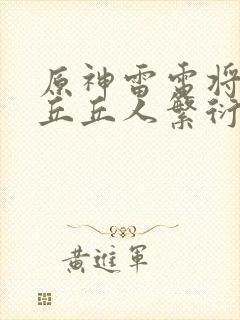 原神雷电将
丘丘人繁衍
黄進軍